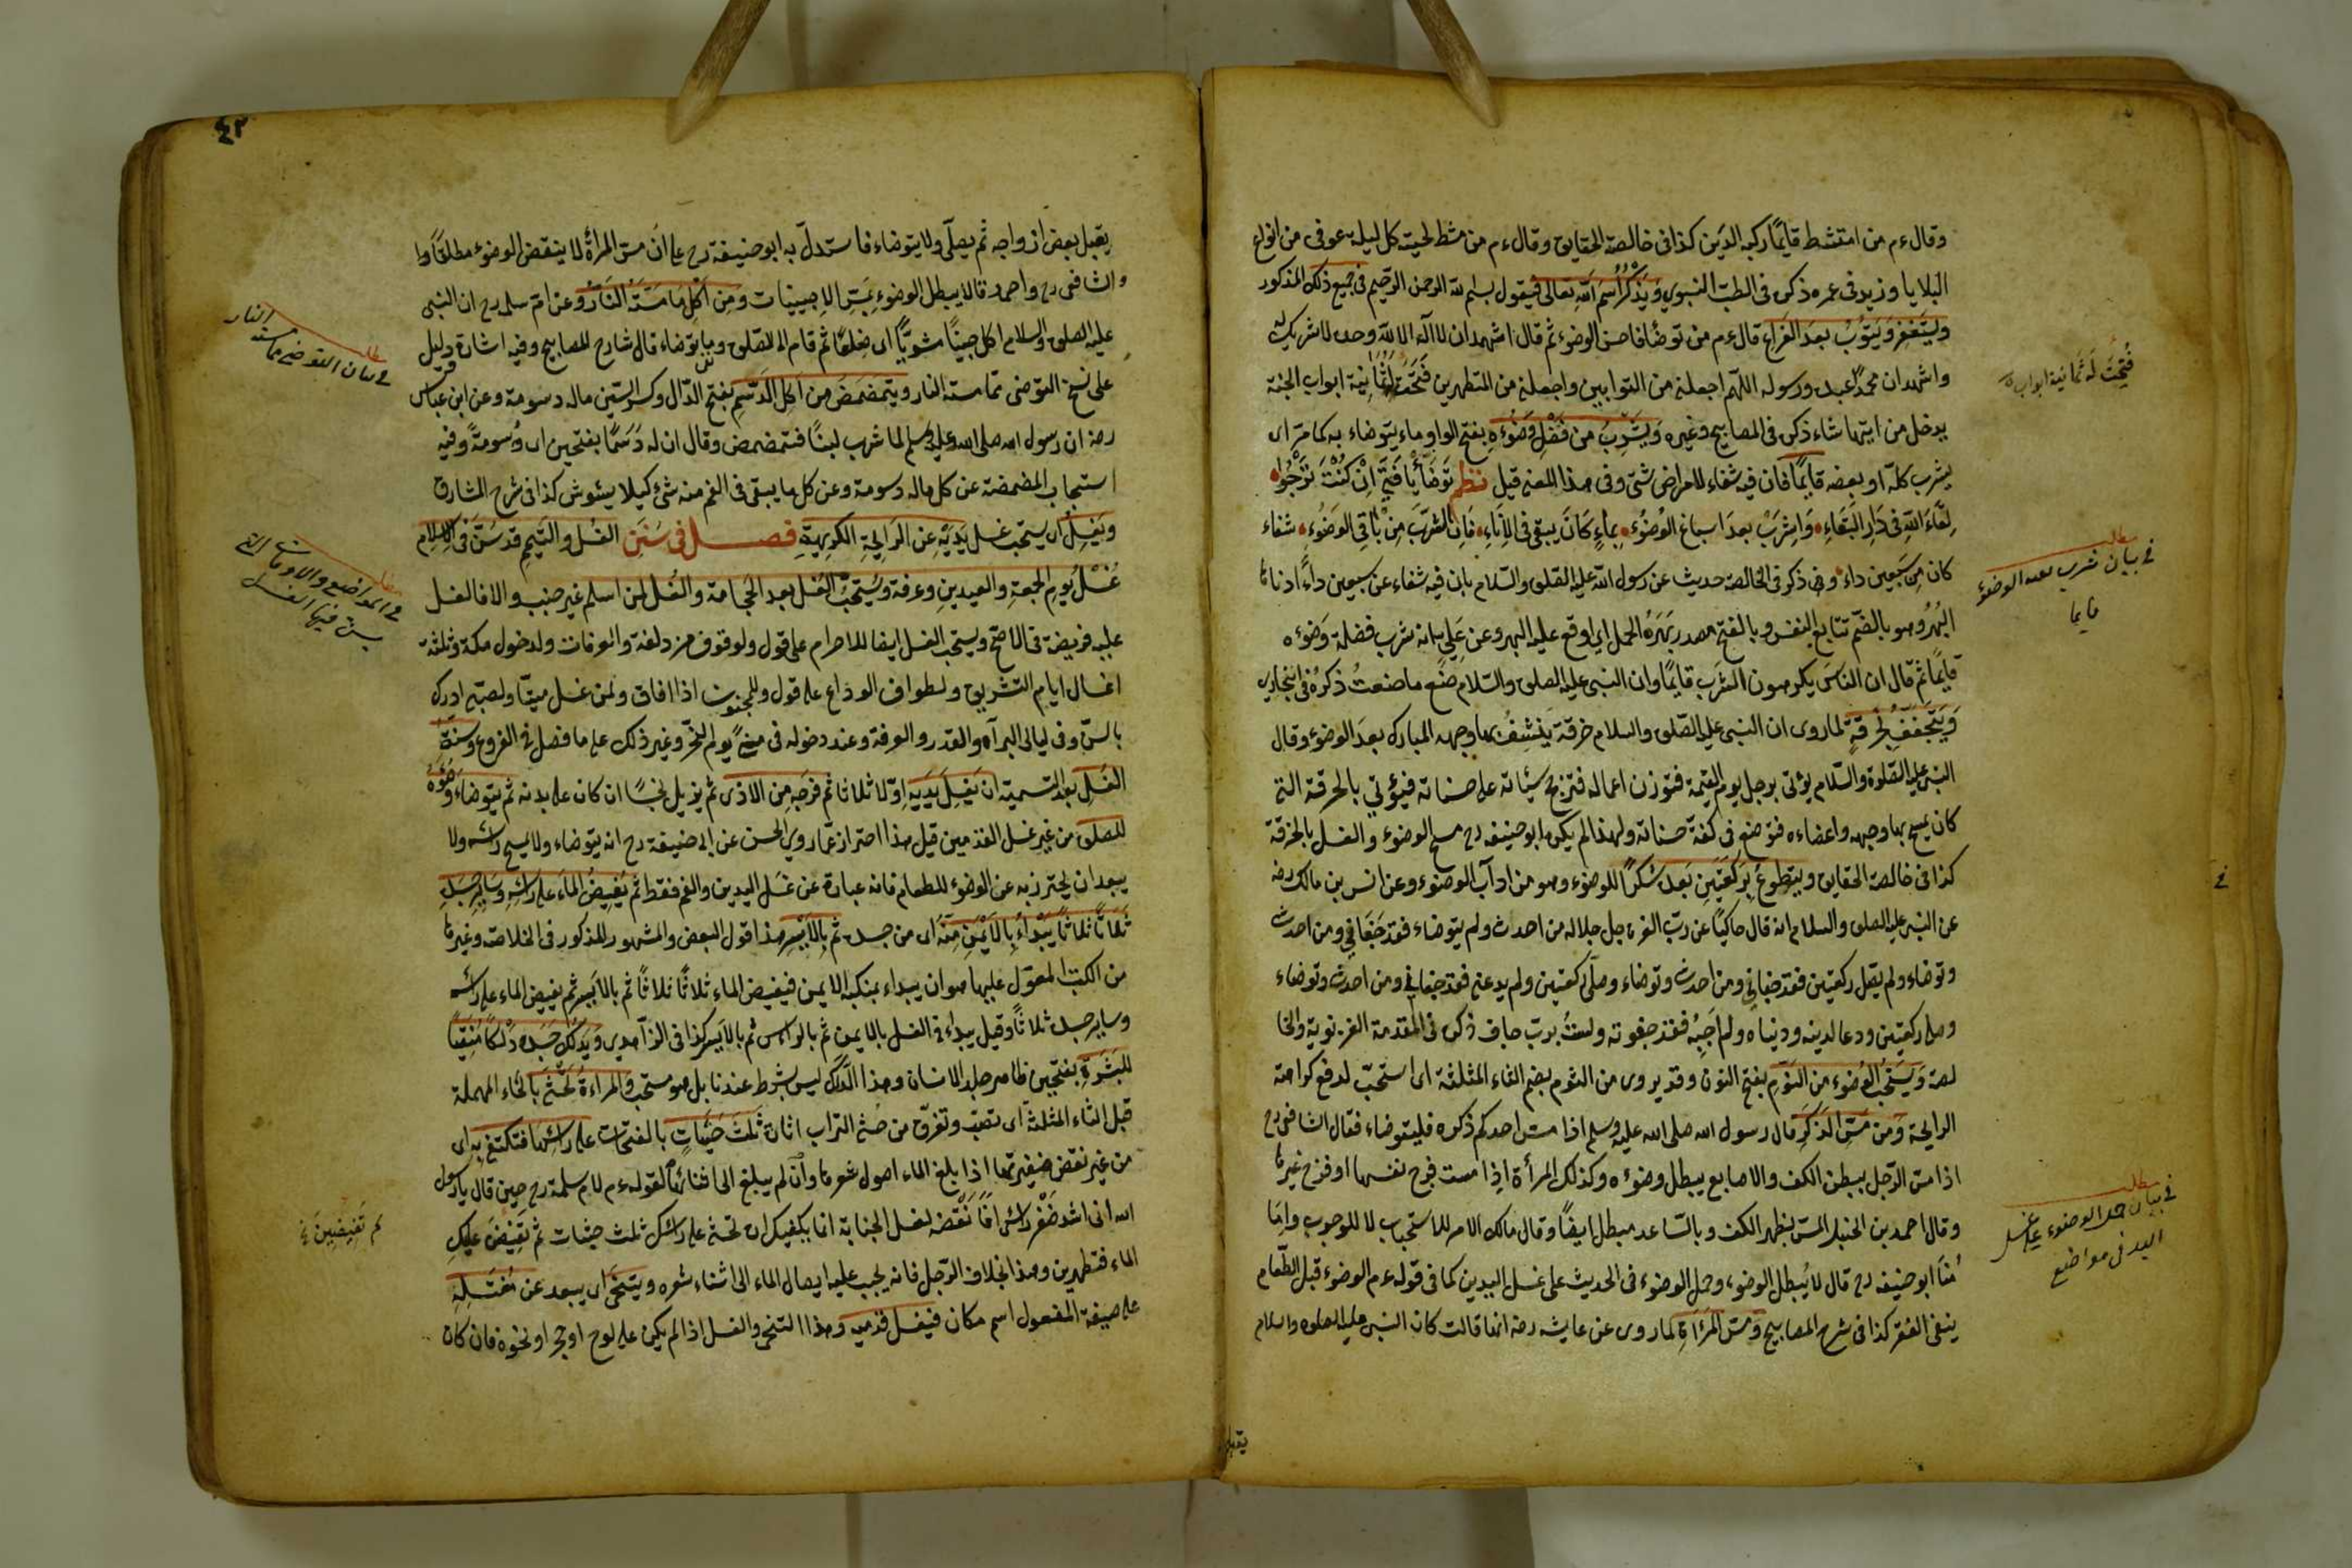 وقال ءم من امتشط قايمًا ركبه الدَين كذا في خالصة الحقايق وقال ءم من مشط لحيته كل ليلة عوفي من انواع
البلايا وزيد في عمره ذكره في الطب النبوي وَيَذْكُرُ اسْمَ اللهِ تعالى فيقول بسم لله الرحمن الرحيم في جميع ذلك المذكور
ويستغفر وَيَتوُبُ بعدَ الفَراغِ قال ءم من توضّأ فاحسن الوضوء ثم قال اشهد ان لا اله الا الله وحده لا شريك له
واشهد ان محمدًا عبده ورسوله اللهم اجعلني من التوابين واجعلني من المتطهرين فتحت له ثمانية ابواب الجنة
يدخل من ايّها شاء ذكره في المصابيح وغيره وَيشرب من فضل وضوءه بفتح الواو ماء يتوضاء به كما مرّ اى
يشرب كلّه او بعضه قايمًا فان فيه شفاء لامراض شتى وفي هذا المعنى قيل نظم تَوَضّأ يا فَتًى اِنْ كُنْتَ تَرْجُوا
لِقَاءَ اللهِ في دَارِ البَقاءِ وَاشْرَبْ بعدَ اسباغ الوُضُوءِ بماءٍ كَانَ يبقى في الاِنَاءِ فَاِنّ الشُربَ مِنْ بَاقِي الوَضُوءِ شفاء
كان مِن سَبعينِ داء وفي ذكر في الخالصة حديث عن رسول الله عليه الصلوة والسّلام بان فيه شفاء عن سبعين داءً ادناها
البُهْرُ وهو بالضم تتابع النفس وبالفتح مصدر بَهَرَهُ الحمل اي اوقع عليه البهر وعن عَلي بانه شرب فضلة وَضوءه
قايمًا ثم قال ان الناسَ يكرهون الشرب قايمًا وان النبي عليه الصلوة والسّلام صَنَع ما صنعتُ ذكرهُ في البخاري
وَيَتجفّفُ بِخُرقةٍ لما روى ان النبي عليه الصّلوة والسلام خرقة يَنشِفُ بها وجهه المبارك بعدَ الوضوء وقال
النبي عليه الصّلوة والسّلام يؤتى برجل يوم القيمة فتوزن اعماله فترجح سيّاته على حسناته فيؤتى بالخرقة التي
كان يمسح بها وجهه واعضاءه فتوضع في كفة حسناته ولهذا لم يكره ابو حنيفه رح مسح الوضوء والغسل بالخرقة
كذا في خالصة الحقايق ويتطوع بركعَتينِ بَعدَه شكرًا للوضوء وهو من اداب الوضوء وعن انس بن مالك رضه
عن النبي عليه الصلوة والسلام انه قال حاكيًا عن ربّ العزة جل جلاله من احدث ولم يتوضاء فقد جَفَاني ومن احدث
وتوضاء ولم يصل ركعتين فقد جفاني ومن احدث وتوضاء وصلّى ركعتين ولم يدعني فقد جفاني ومن احدث وتوضاء
وصلى ركعتين ودعا لدينه ودنياه ولم اُجبه فقد جفوته ولستُ بربّ جاف ذكره في المقدمة الغزنوية والخا
لصة وَيستحبُّ الوُضوء من النوم بفتح النون وقد يروى من الثوم بضم الثاء المثلثة اى استحبّ لدفع كراهة
الرايحة وَمن مَسّ الذكَرِ قال رسول الله صلى الله عليه وسلم اذا مسّ احدكم ذكره فليتوضاء فقال الشافعي رح
اذا مسّ الرّجل ببطن الكف والاصابع يبطل وضوءه وكذلك المرأة اذا مست فرج نفسها او فرج غيرها
وقال احمد بن الحنبل المسّ بظهر الكف وبالسّاعد مبطل ايضًا وقال مالك الامر للاستحباب لا للوجوب وامّا
ابو حنيفه رح قال لا يُبطل الوضوء وحمل الوضوء في الحديث على غسل اليدين كما في قوله ءم الوضوء قبل الطّعام
ينفي الفقر كذا في شرح المصابيح وَمسّ المَرأةِ لما روى عن عايشه رضه انها قالت كان النبي عليه الصلوه والسلام
فُتِحَتْ لَه ثمانية ابواب
مطلب
في بيان شرب بعد الوضوء
قايما
مطلب
في بيان حمل الوضوء على غسل
اليد في مواضع
يقبل
يقبل بعض ازواجه ثم يصلّى ولا يتوضاء فاستدلّ به ابو حنيفة رح على انّ مسّ المرأة لا ينقض الوضوء مطلقًا
والشافعي رح واحمد قالا يبطل الوضوء بمسّ الاجنبيات وَمِن اَكلِ مَا مَسَّتهُ النّارُ وعن ام سلمه رح ان النبي
عليه الصلوة والسلام اكل جنبًا مشويًّا اى ضلعًا ثم قام الى الصّلوة وما توضاء قال شارح المصابيح وفيه اشارة ودليل
على نسخ التوضي ممّا مسته النار ويتمضمضَ مِن اَكل الدَسِمِ بفتح الدّال وكسر السّين ماله دسومة وعن ابن عباس
رضه ان رسول الله صلى الله عليه وسلم لما شرب لبنًا فتمضمض وقال ان له دَسَمًا بفتحين اى دُسومةً وفيه
استحباب المضمضة عن كل ماله دسومة وعن كل ما يبقى في الفم منه شئ كيلا يشوش كذا في شرح المشارق
وَيَغسِلُ اى يستحب غسل يَدَيْه عن الرَايحَةِ الكَرِيهَةِ فصل في سُنَنِ الغُسل والتيمم قد سُنَّ في الاِسلامِ
غُسْلُ يومِ الجمعةِ والعيدينِ وعرفة وَيُستَحبّ الغُسل بعد الحَجامة والغُسل لمن اسلم غير جنب والا فالغسل
عليه فريضة في الاصح ويستحب الغسل ايضا للاحرام على قول ولوقوف مزدلفة والعرفات ولدخول مكة وثلثة
اغسال ايام التشريق ولطواف الوداع على قول وللمجنون اذا افاق ولمن غسل ميتًا ولصبي ادرك
بالسنّ وفي ليالي البرآة والقدر والعرفة وعند دخوله في منى يوم النحر وغير ذلك على ما فصل في الفروع وسنة
الغُسلِ بعد التسمية ان يَغسِلَ يَدَيَهِ اوّلا ثلاثا ثم فرجَه مِن الاذى ثم يزيل نجسًا ان كان على بدنه ثم يتوضاءَ وُضُوءَهُ
للصلوة من غير غسل القدمين قيل هذا احتراز عمّا روى الحسن عن ابي حنيفة رح انه يتوضاء ولا يمسح راسه ولا
يبعد ان يحترز به عن الوضوء للطعام فانه عبارة عن غَسل اليدين والفم فقط ثم يُفيضُ الماءَ على رَاسِهِ وَسَايِرِ جَسَدِهِ
ثَلاثًا ثلاثًا يَبْدَاءُ بِالاَيْمَنِ مِنْهُ اى من جسده ثم بِالاَيسَرِ هذا قول البعض والمشهور المذكور في الخلاصة وغيرها
من الكتب المعوّل عليها هو ان يبداء بمنكبه الايمن فيفيض الماء ثلاثًا ثلاثًا ثم بالايسر ثم يفيض الماء على راسه
وساير جسده ثلاثًا وقيل يبداء في الغسل بالايمن ثم بالراس ثم بالايسر كذا في الزاهدي وَيَدْلُكُ جَسَدَه دَلْكًا مُنَقِّيًا
للبَشَرَةِ بفتحين ظاهر جلد الانسان وهذا الدّلك ليس بشرط عندنا بل هو مستحب وَالمراءةُ تَحْثِى بالحاء المهملة
قبل الثاء المثلثة اى تصبّ وتفرّق من حثى التراب اثارة ثَلثَ حَثَيَاتٍ بالفتحات على راسِها فتكتفى به اى
من غير نقض ضفيرتها اذا بلغ الماء اصول شعرها وان لم يبلغ الى اثنائها لقوله ءم لام سلمة رح حين قال يا رسول
الله انى اشد ضَفْر راسى افانقضه لغسل الجنابة انما يكفيك ان تحثى على راسك ثلث حثيات ثم تُفيضَى عليكِ
الماء فتطهرين وهذا بخلاف الرّجل فانه يجب عليه ايصال الماء الى اثناء شعره ويَتنحّى اى يبعد عن مُغتَسَلِهِ
على صيغة المفعول اسم مكان فيغسل قدميه وهذا التنحى والغسل اذا لم يكن على لوح او حجر او نحوه فان كان
مطلب
في بيان التوضي مما مسته النار
مطلب
في المواضع والاوقات التي
يسن فيها الغسل
ثم تُفِيضِينَ